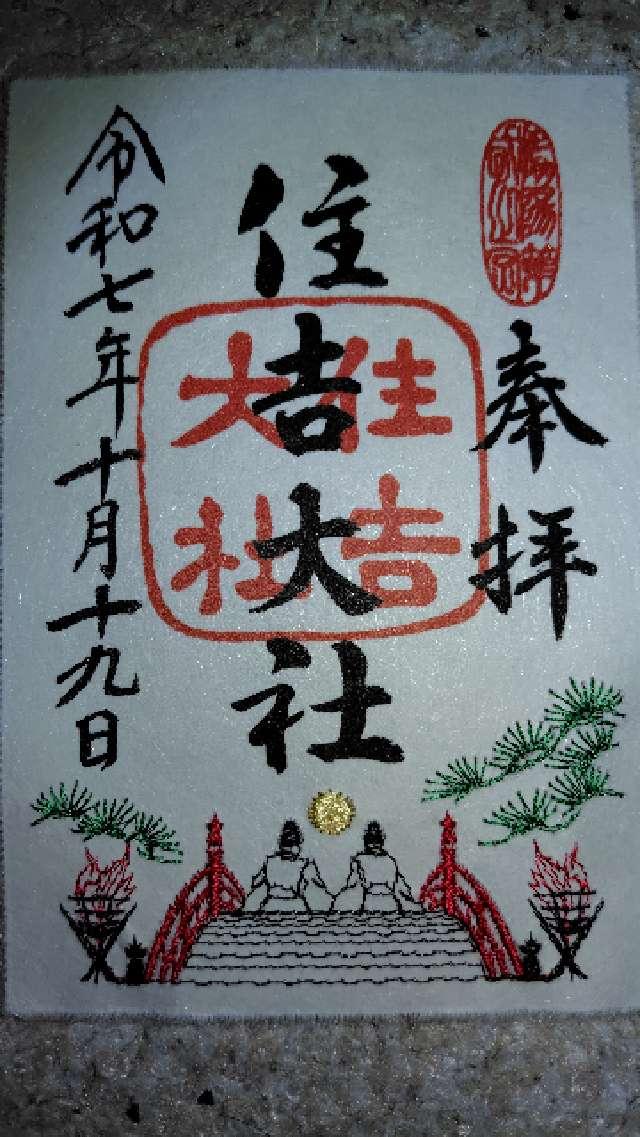 奉拝
住吉大社
住吉大社
令和七年十月十九日